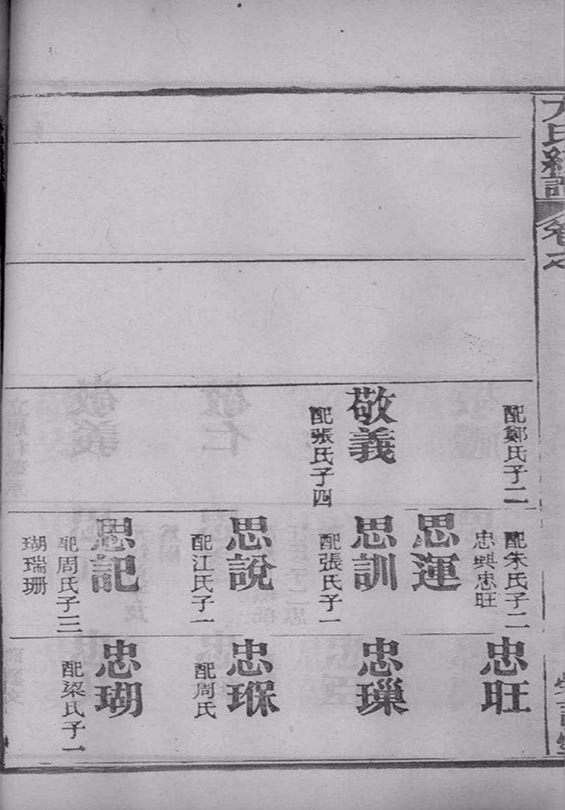 配鄭氏子二
敬義
配張氏子四
配朱氏子二
忠興忠旺
思運
思訓
配張氏子一
思說
配江氏子一
思記
配周氏子三
瑚瑞珊
忠旺
忠璅
忠琛
配周氏
忠瑚
配梁氏子一